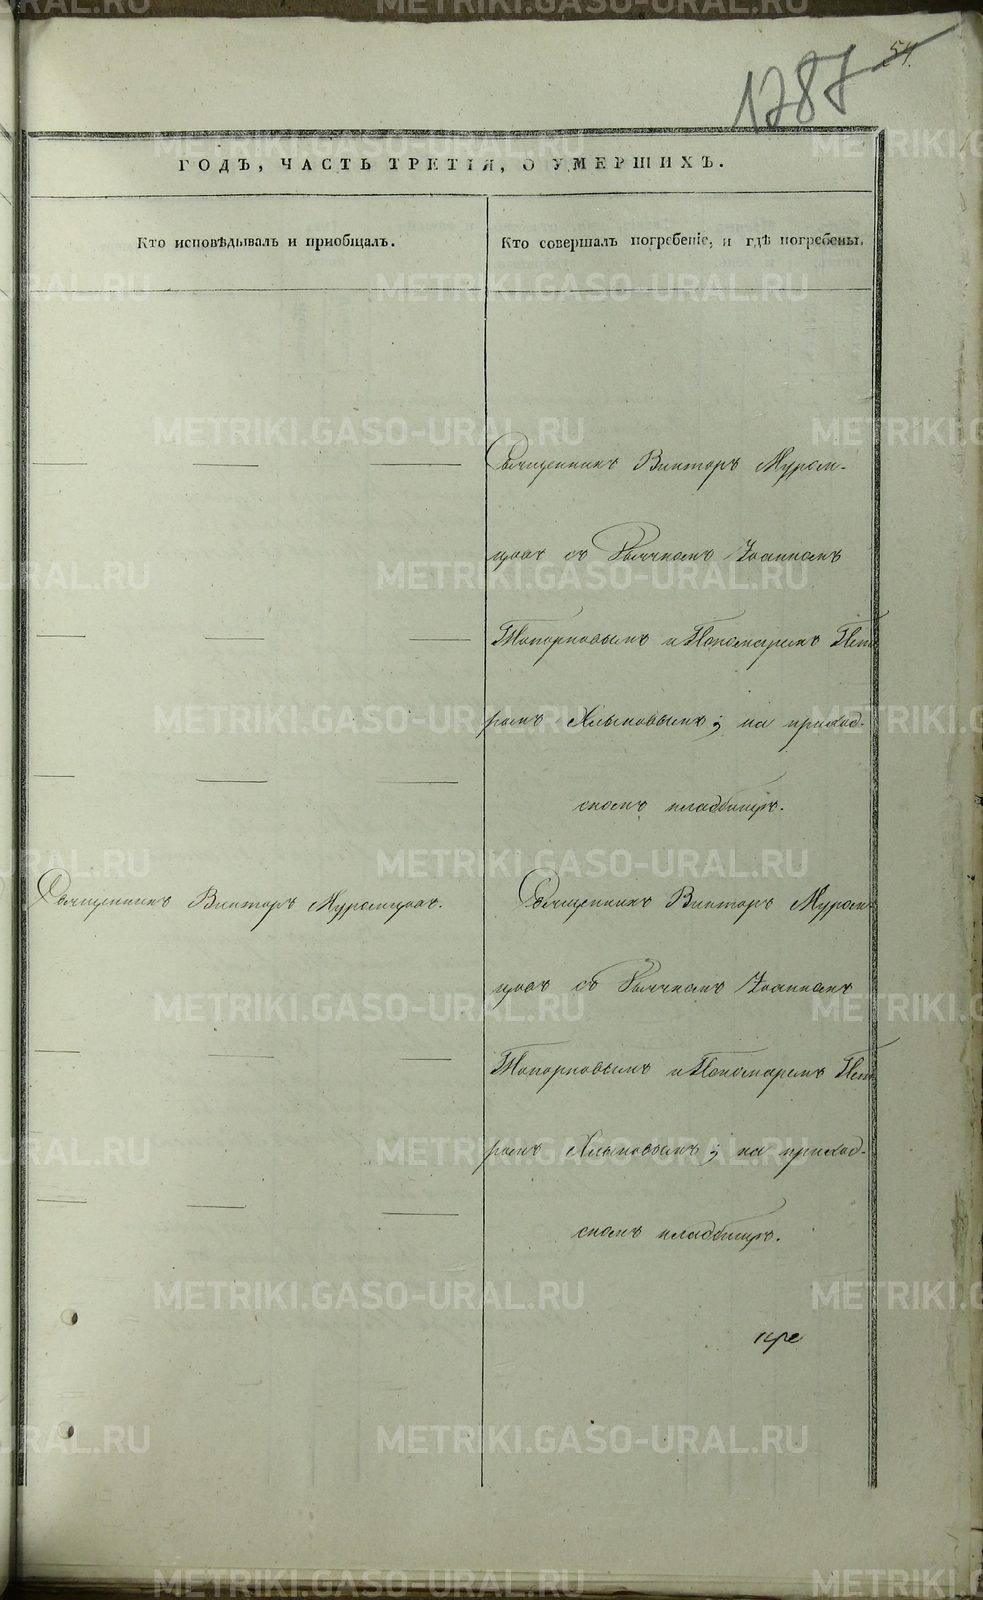 54.
1787
ГОДЪ, ЧАСТЬ ТРЕТІЯ, О УМЕРШИХЪ.
Кто исповѣдывалъ и пріобщалъ.
Кто совершалъ погребеніе, и гдѣ погребены.
Священникъ Викторъ Муром-
цовъ съ Дьячкомъ Іоанномъ
Топорковымъ и Пономаремъ Пет
ромъ Хлыновымъ; на приход-
скомъ кладбищѣ.
Священникъ Викторъ Муромцовъ.
Священникъ Викторъ Муром-
цовъ съ Дьячкомъ Іоанномъ
Топорковымъ и Пономаремъ Пет
ромъ Хлыновымъ; на приход-
скомъ кладбищѣ.
METRIKI.GASO-URAL.RU